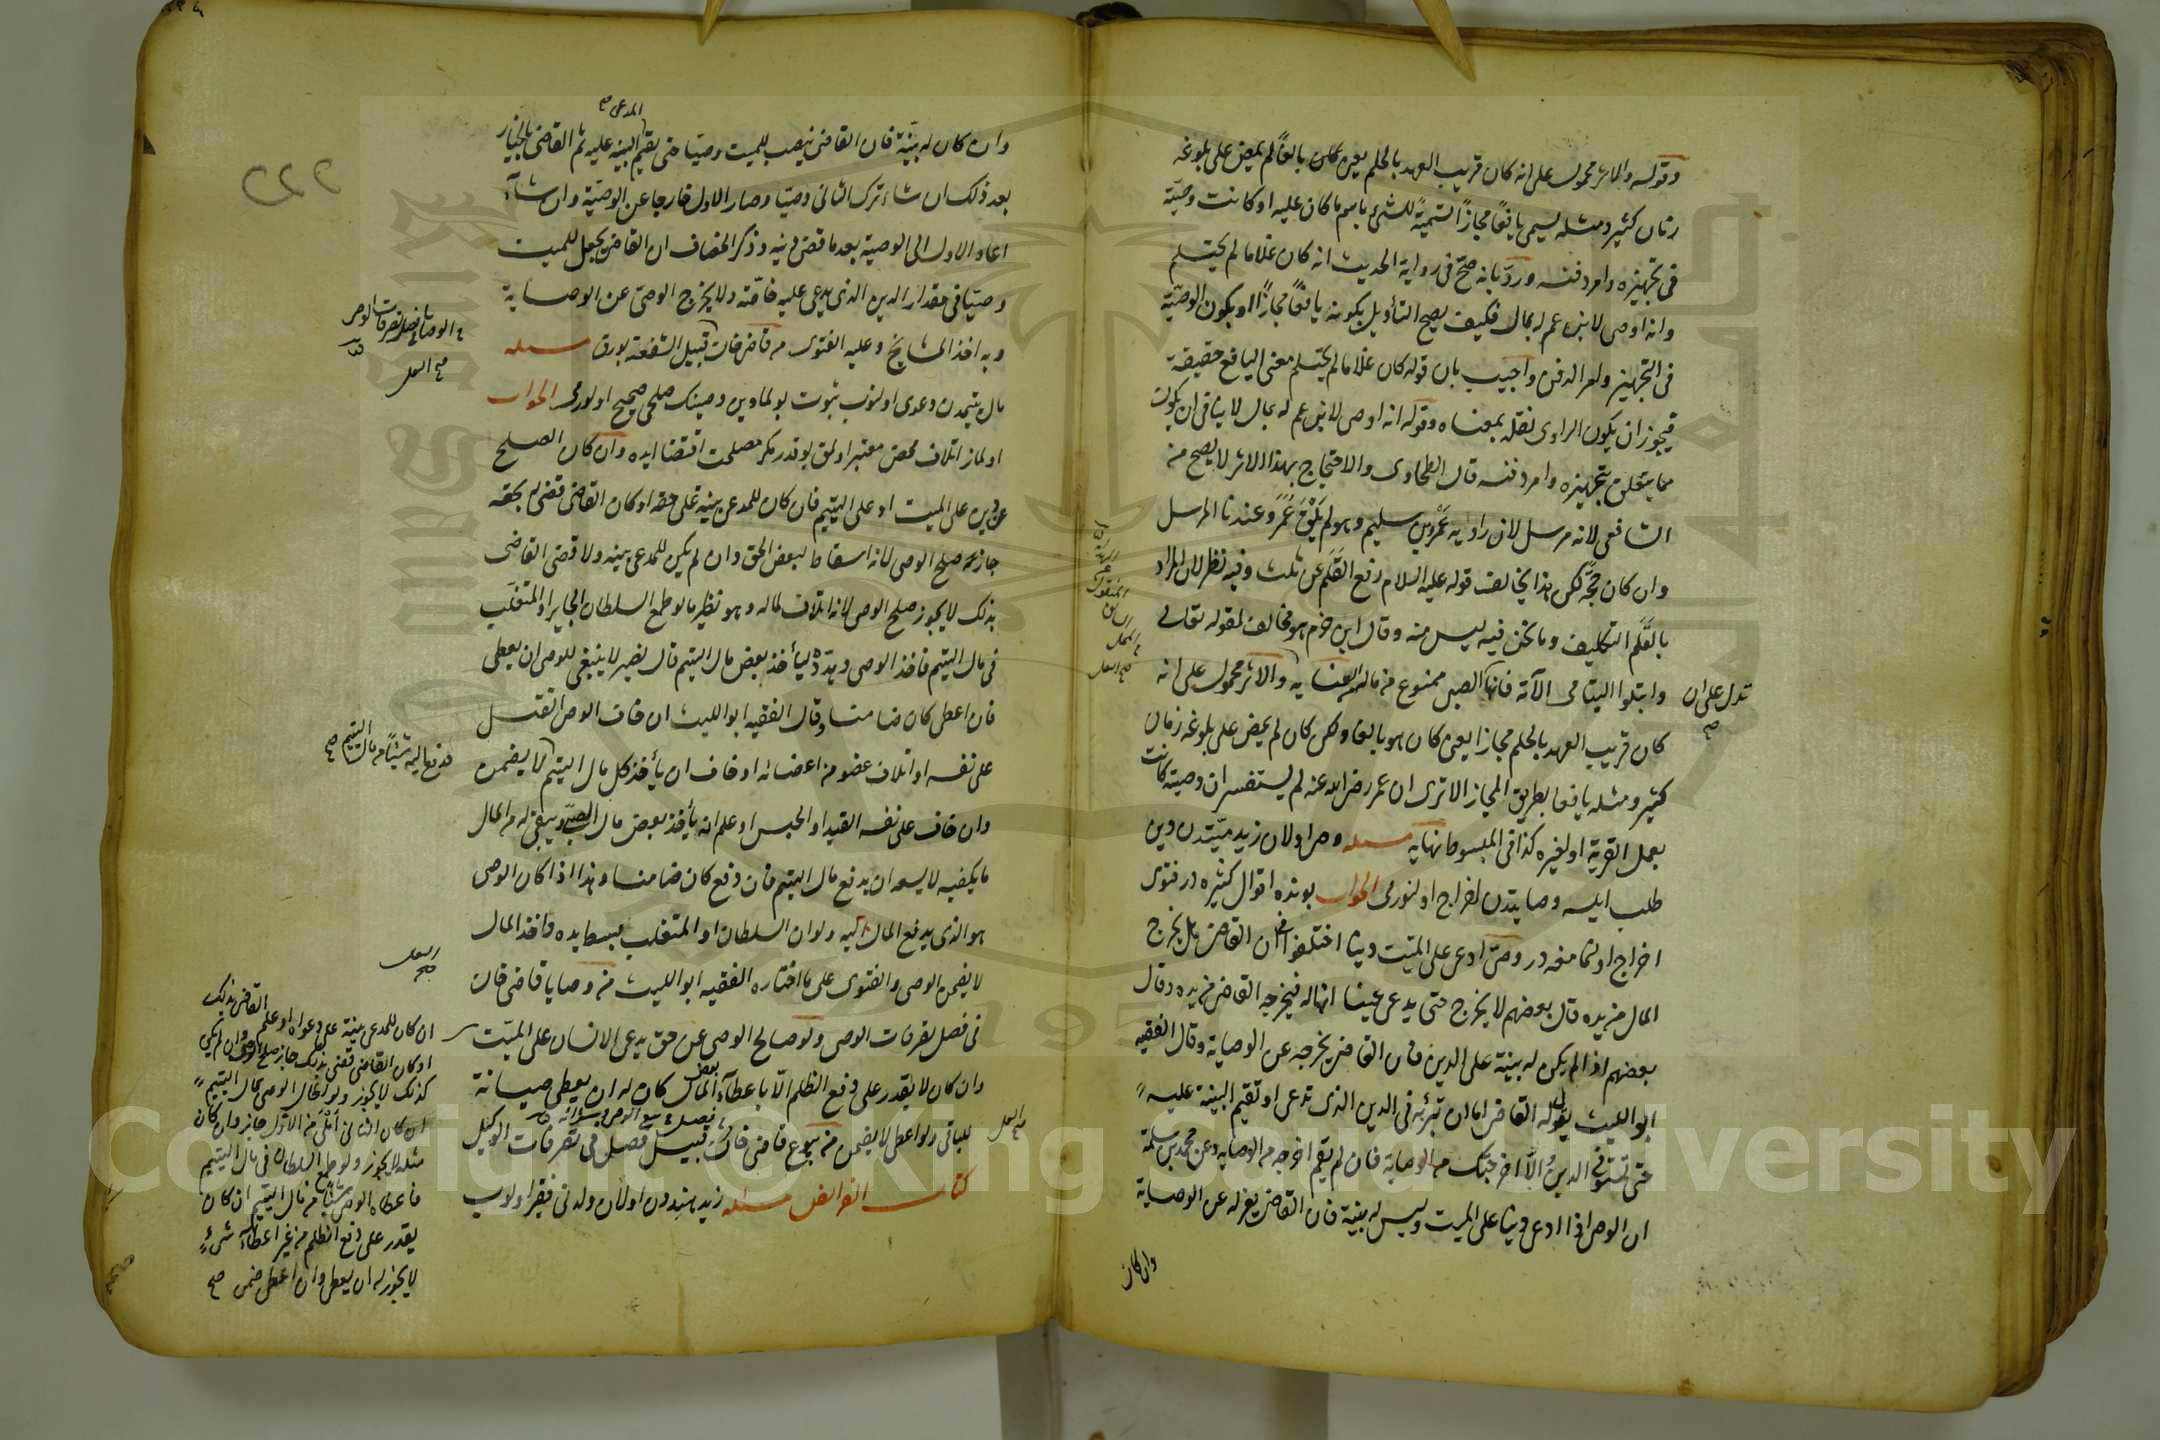 وقوله والاثر محمول على انه كان قريب العهد بالحلم يعنى كان بالغا لم يمض على بلوغه
زمان كثير ومثله يسمى يافعًا مجازًا تسمية للشئ باسم ما كان عليه او كانت وصيته
فى تجهيزه وامر دفنه ورد بانه صح فى رواية الحديث انه كان غلاما لم يحتلم
وانه اوصى لابنة عم له بمال فكيف يصح التأويل بكونه يافعًا مجازًا او بكون الوصية
فى التجهيز وامر الدفن واجيب بان قوله كان غلاما لم يحتلم معنى اليافع حقيقة
فيجوز ان يكون الراوى نقله بمعناه وقوله انه اوصى لابنة عم له بمال لا ينافى ان يكون
مما يتعلق بتجهيزه وامر دفنه قال الطحاوى والاحتجاج بهذا الاثر لا يصح من
الشافعى لانه مرسل لان راويه عمرو بن سليم وهو لم يلق عمر وعندنا المرسل
وان كان حجة لكن هذا يخالف قوله عليه السلام رفع القلم عن ثلث وفيه نظر لان المراد
بالقلم التكليف وما نحن فيه ليس منه وقال ابن حزم هو مخالف لقوله تعالى
وابتلوا اليتامى الآية فانها الصبى ممنوع من ماله العناية والاثر محمول على انه
تدل على ان
صح
كان قريب العهد بالحلم مجازا يعنى كان هو بالغا ولكن كان لم يمض على بلوغه زمان
كثير ومثله يافعا بطريق المجاز الا ترى ان عمر رضى الله عنه لم يستفسر ان وصيته كانت
بعمل القربة او لغيره كذا فى المبسوط نهايه مسئله وصى اولان زيد ميتدن دين
طلب ايلسه وصايتدن اخراج اولنورمى الجواب بونده اقوال كثيره در فتوى
اخراج اولنمامغه در وصى ادعى على الميت دينا اختلفوا فى ان القاضى هل يخرج
المال من يده قال بعضهم لا يخرج حتى يدعى عينا انها له فيخرجه القاضى من يده وقال
بعضهم اذا لم يكن له بينة على الدين فان القاضى يخرجه عن الوصاية وقال الفقيه
ابو الليث يقول له القاضى اما ان تبرئه فى الدين الذى تدعى او تقيم البينة عليه
حتى تستوفى الدين والا اخرجتك من الوصاية فان لم يقم اخرجه من الوصايه وعن محمد بن سلمة
ان الوصى اذا ادعى دينا على الميت وليس له بينة فان القاضى يعزله عن الوصاية
وان كان
٢٢٢
المدعى صح
وان كان له بينة فان القاضى ينصب للميت وصيا حتى يقيم البينة عليه ثم القاضى بالخيار
بعد ذلك ان شاء ترك الثانى وصيا وصار الاول خارجا عن الوصية وان شاء
اعاد الاول الى الوصية بعد ما قضى دينه وذكر الخصاف ان القاضى يجعل للميت
وصيا فى مقدار الدين الذى يدعى عليه خاصة ولا يخرج الوصى عن الوصاية
وبه اخذ المشايخ وعليه الفتوى من قاضيخان قبيل الشفعة بورق مسئله
مال يتيمدن دعوى اولنوب ثبوت بولمادين وصينك صلحى صحيح اولورمى الجواب
اولماز اتلاف محض معتبر اولمق يوقدر مكر مصلحت اقتضا ايده وان كان الصلح
عن دين على الميت او على اليتيم فان كان للمدعى بينة على حقه او كان القاضى قضى له بحقه
جاز صلح الوصى لانه اسقاط لبعض الحق وان لم يكن للمدعى بينه ولا قضى القاضى
بذلك لا يجوز صلح الوصى لانه اتلاف لماله وهو نظير ما لو طمع السلطان الجاير او المتغلب
فى مال اليتيم فاخذ الوصى وهدده ليأخذ بعض مال اليتيم قال نصير لا ينبغى للوصى ان يعطى
فان اعطى كان ضامنا وقال الفقيه ابو الليث ان خاف الوصى القتل
على نفسه او اتلاف عضو من اعضائه او خاف ان يأخذ كل مال اليتيم لا يضمن
وان خاف على نفسه القيد او الحبس او علم انه يأخذ بعض مال الصبى ويبقى له من المال
ما يكفيه لا يسعه ان يدفع مال اليتيم فان دفع كان ضامنا وهذا اذا كان الوصى
هو الذى يدفع المال اليه ولو ان السلطان او المتغلب بسط يده واخذ المال
لا يضمن الوصى والفتوى على ما اختاره الفقيه ابو الليث من وصايا قاضى خان
فى فصل تصرفات الوصى ولو صالح الوصى عن حق يدعى لانسان على الميت
وان كان لا يقدر على دفع الظلم الا باعطاء بعض المال كان له ان يعطى صيانة
للباقى ولو اعطى لا يضمن من بيوع قاضى خان قبيل فصل فى تصرفات الوكيل
كتاب الفرائض مسئله زيد هنددن اولان ولدنى فقير اولوب
فدفع اليه شيئًا من مال اليتيم صح
ان كان للمدعى بينة على دعواه او علم القاضى بذلك
او كان القاضى قضى بذلك جاز صلح الوصى وان لم يكن
كذلك لا يجوز ولو احتال الوصى بمال اليتيم
ان كان الثانى املى من الاول جاز وان كان
مثله لا يجوز ولو طمع السلطان فى مال اليتيم
فاعطاه الوصى شيئا من مال اليتيم ان كان
يقدر على دفع الظلم من غير اعطاء شئ
لا يجوز له ان يعطى وان اعطى ضمن صح